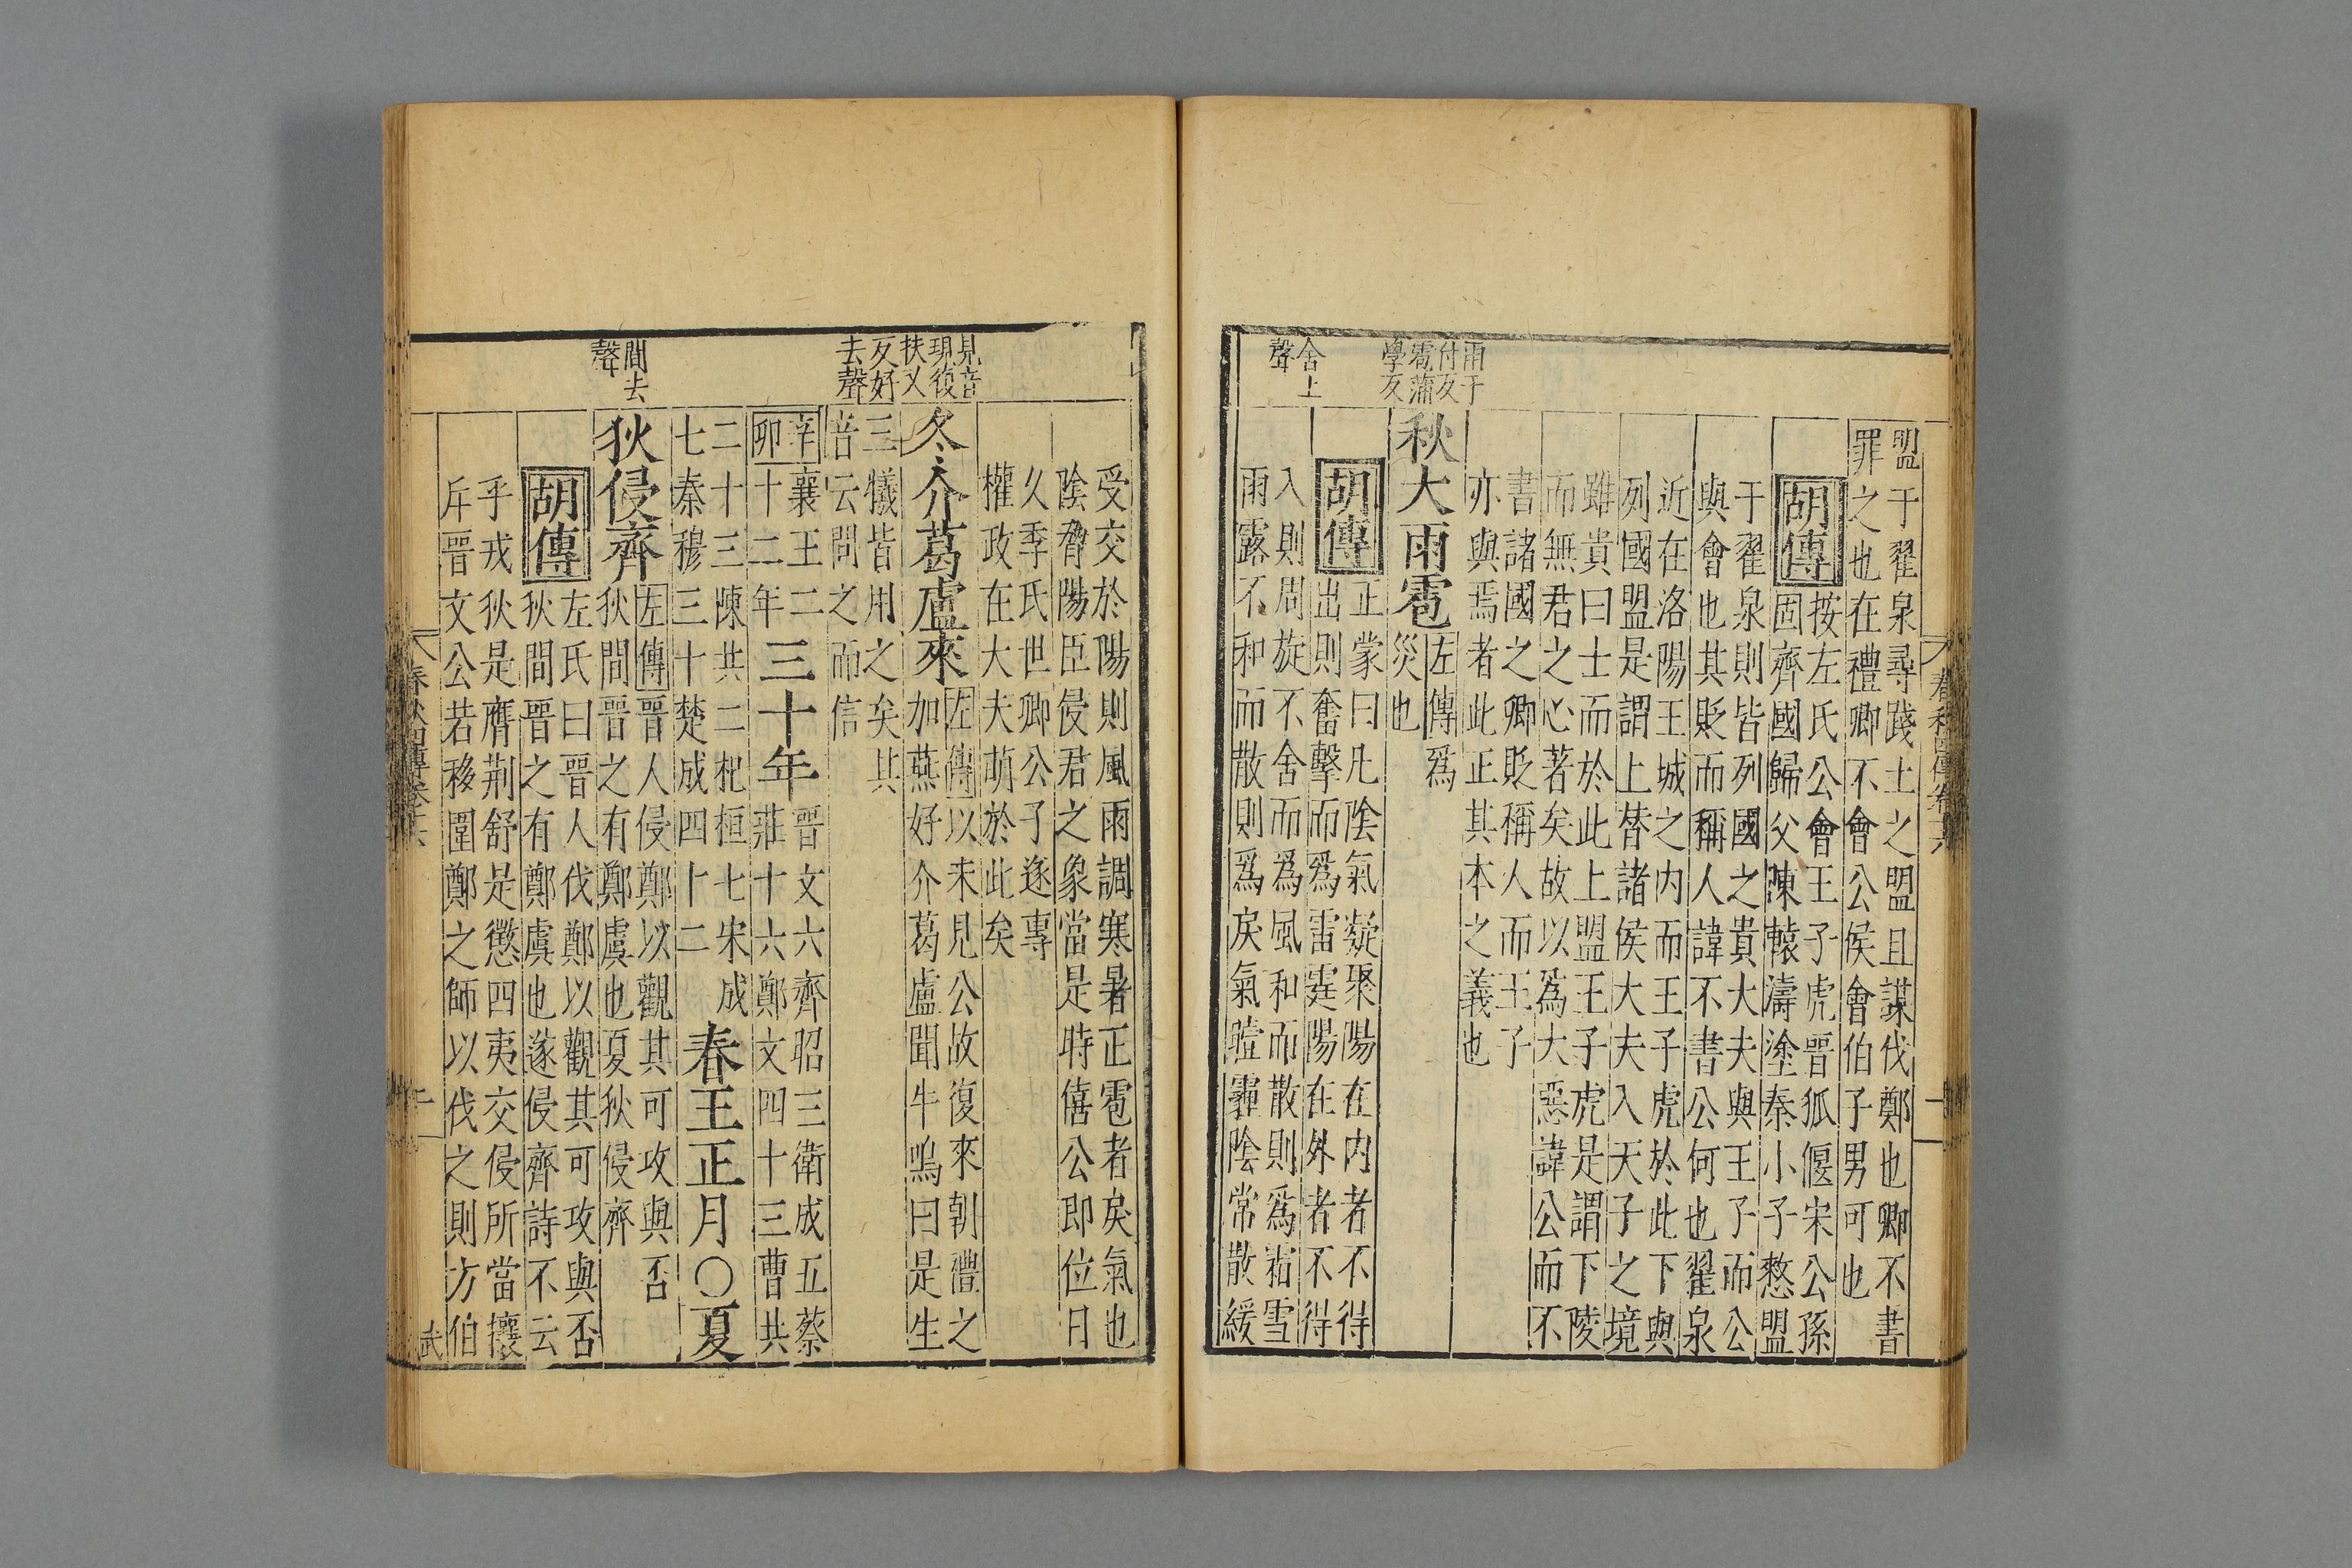 盟于翟泉尋踐土之盟且謀伐鄭也卿不書
罪之也在禮卿不會公侯會伯子男可也
胡傳
按左氏公會王子虎晉狐偃宋公孫
固齊國歸父陳轅濤塗秦小子憖盟
于翟泉則皆列國之貴大夫與王子而公
與會也其貶而稱人諱不書公何也翟泉
近在洛陽王城之内而王子虎於此下與
列國盟是謂上替諸侯大夫入天子之境
雖貴曰士而於此上盟王子虎是謂下陵
而無君之心著矣故以爲大惡諱公而不
書諸國之卿貶稱人而王子
亦與焉者此正其本之義也
雨于
付反
雹蒲
學反
秋大雨雹
左傳爲
災也
胡傳
正蒙曰凡陰氣凝聚陽在内者不得
出則奮擊而爲雷霆陽在外者不得
舍上
聲
入則周旋不舍而爲風和而散則爲霜雪
雨露不和而散則爲戾氣曀霾陰常散緩
春秋四傳卷十六
受交於陽則風雨調寒暑正雹者戾氣也
陰脅陽臣侵君之象當是時僖公即位日
久季氏世卿公子遂專
權政在大夫萌於此矣
見音
現復
扶又
反好
去聲
冬介葛盧來
左傳以未見公故復來朝禮之
加燕好介葛盧聞牛鳴曰是生
三犧皆用之矣其
音云問之而信
辛
卯
襄王二
十二年
三十年
晉文六齊昭三衛成五蔡
莊十六鄭文四十三曹共
二十三陳共二杞桓七宋成
七秦穆三十楚成四十二
春王正月〇夏
間去
聲
狄侵齊
左傳晉人侵鄭以觀其可攻與否
狄間晉之有鄭虞也夏狄侵齊
胡傳
左氏曰晉人伐鄭以觀其可攻與否
狄間晉之有鄭虞也遂侵齊詩不云
乎戎狄是膺荆舒是懲四夷交侵所當攘
斥晉文公若移圍鄭之師以伐之則方伯
武